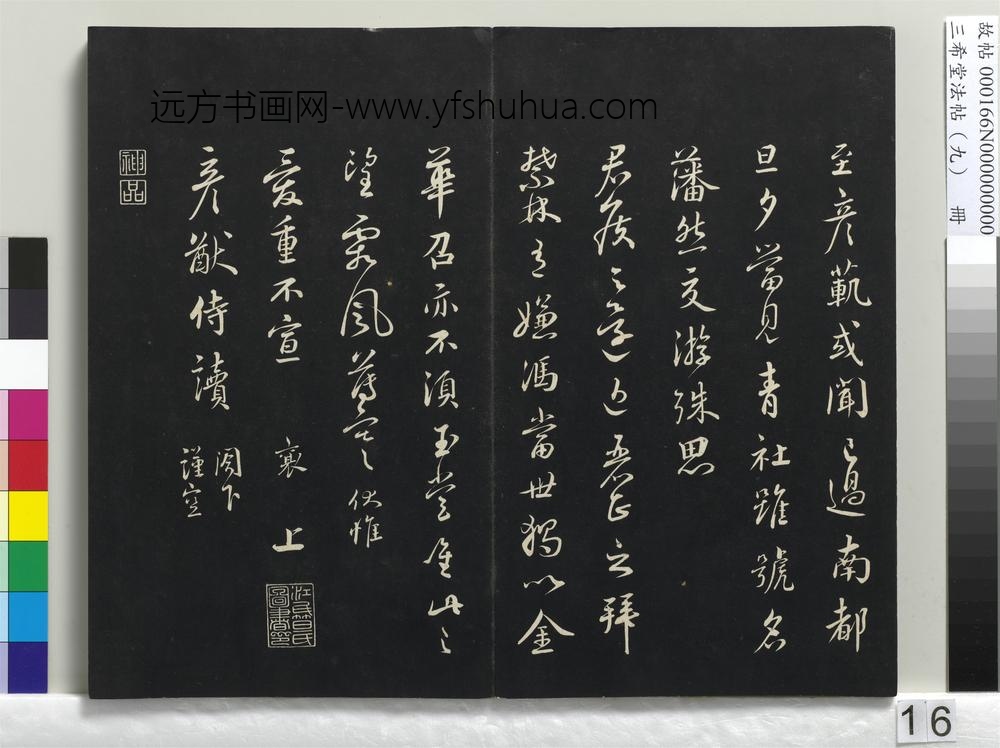 远方书画网-www.yfshuhua.com
故帖 000166N000000000
三希堂法帖(九) 冊
至彦範或聞已過南都
旦夕當見青社雖號名
藩然交游殊思
君侯之還近麗正之拜
禁林有嫌馮當世獨以金
華召亦不須玉堂唯此之
望霜風薦寒伏惟
愛重不宣 襄 上
彦猷侍讀 閣下
謹空
神品
16